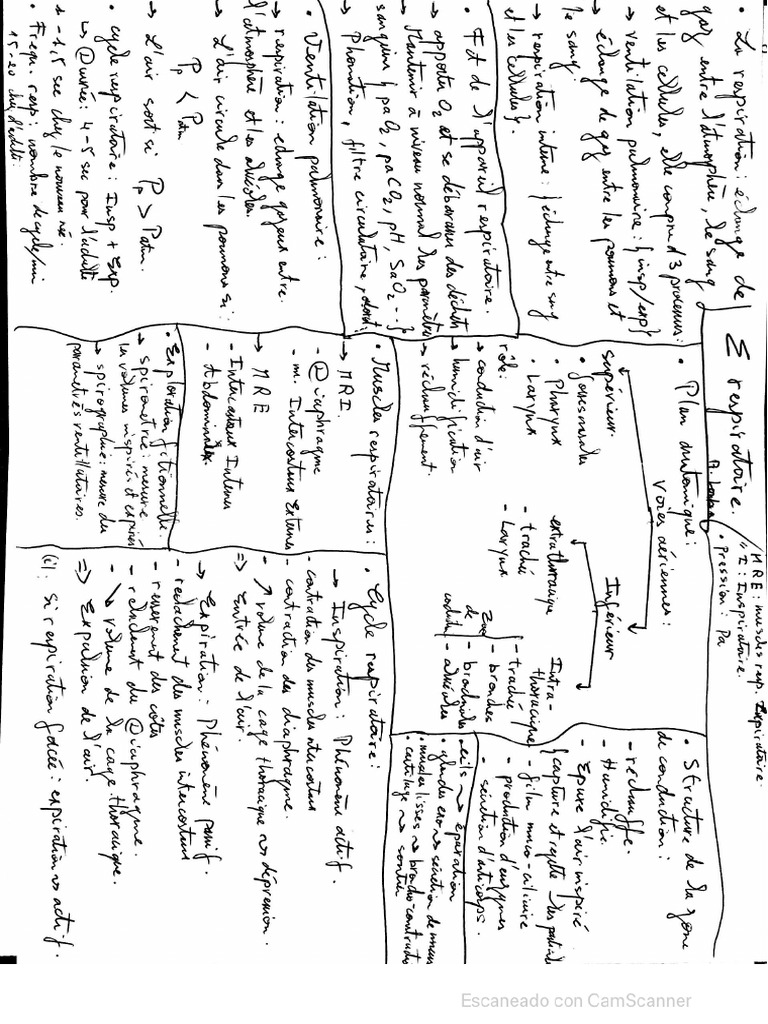 Σ respiratoire.
MRE : muscles resp. Expiratoire
" I : Inspiratoire.
• Pression : Pa
• La respiration : échange de
gaz entre l'atmosphère, le sang
et les cellules, elle comprend 3 processus :
→ ventilation pulmonaire : {insp/exp}
→ échange de gaz entre les poumons et
le sang
→ respiration interne : {échange entre sang
et les cellules}.
• Fct de l'appareil respiratoire.
→ apporter O2 et se débarasser des déchets
→ Maintenir à niveau normal les paramètres
sanguins {paO2, paCO2, pH, SaO2...}
→ Phonation, filtre circulatoire,
• Ventilation pulmonaire :
→ respiration : échange gazeux entre
l'atmosphère et les alvéoles.
→ L'air circule dans les poumons si :
Pp < Patm
→ L'air sort si Pp > Patm.
• cycle respiratoire : Insp + Exp.
↳ Durée : 4-5 sec pour l'adulte
+ -1,5 sec chez le nouveau né.
• Freq. resp : nombre de cycle/min
15-20 chez l'adulte.
• Plan anatomique :
voies aériennes :
supérieur
• fosses nasales
• Pharynx
• Larynx
rôle :
→ conduction d'air
→ humidification
→ réchauffement.
Inférieur
extrathoracique
- trachée
- Larynx
Intra-
thoracique
- trachée
- bronches
- bronchioles
- alvéoles
Zone
de
conduct°
• Structure de la zone
de conduction :
- réchauffe.
- Humidifie
- Epure l'air inspiré
{capture et rejette les particules
- film muco-ciliaire
- production d'enzymes
- sécrétion d'anticorps.
- cils → épuration
• glandes exo → sécrétion de mucus
• muscles lisses → broncho-constriction
• cartilage → soutien
• Muscles respiratoires :
→ MRI.
- Diaphragme
- m. Intercostaux Externes
→ MRE
- Intercostaux Internes
- Abdominaux.
• Exploration fctionnelle.
→ spirometrie : mesure
les volumes inspirés et expirés
→ spirographie : mesure des
paramètres ventilatoires.
• Cycle respiratoire :
→ Inspiration : Phénomène actif.
- contraction des muscles intercostaux
- contraction du diaphragme.
- ↗ volume de la cage thoracique → dépression.
=> Entrée de l'air.
→ Expiration : Phénomène passif.
- relachement des muscles intercostaux
- resserrement des côtes
- relachement du Diaphragme.
- ↘ volume de la cage thoracique.
=> Expulsion de l'air.
(i) : si respiration forcée : expiration → actif.
Escaneado con CamScanner